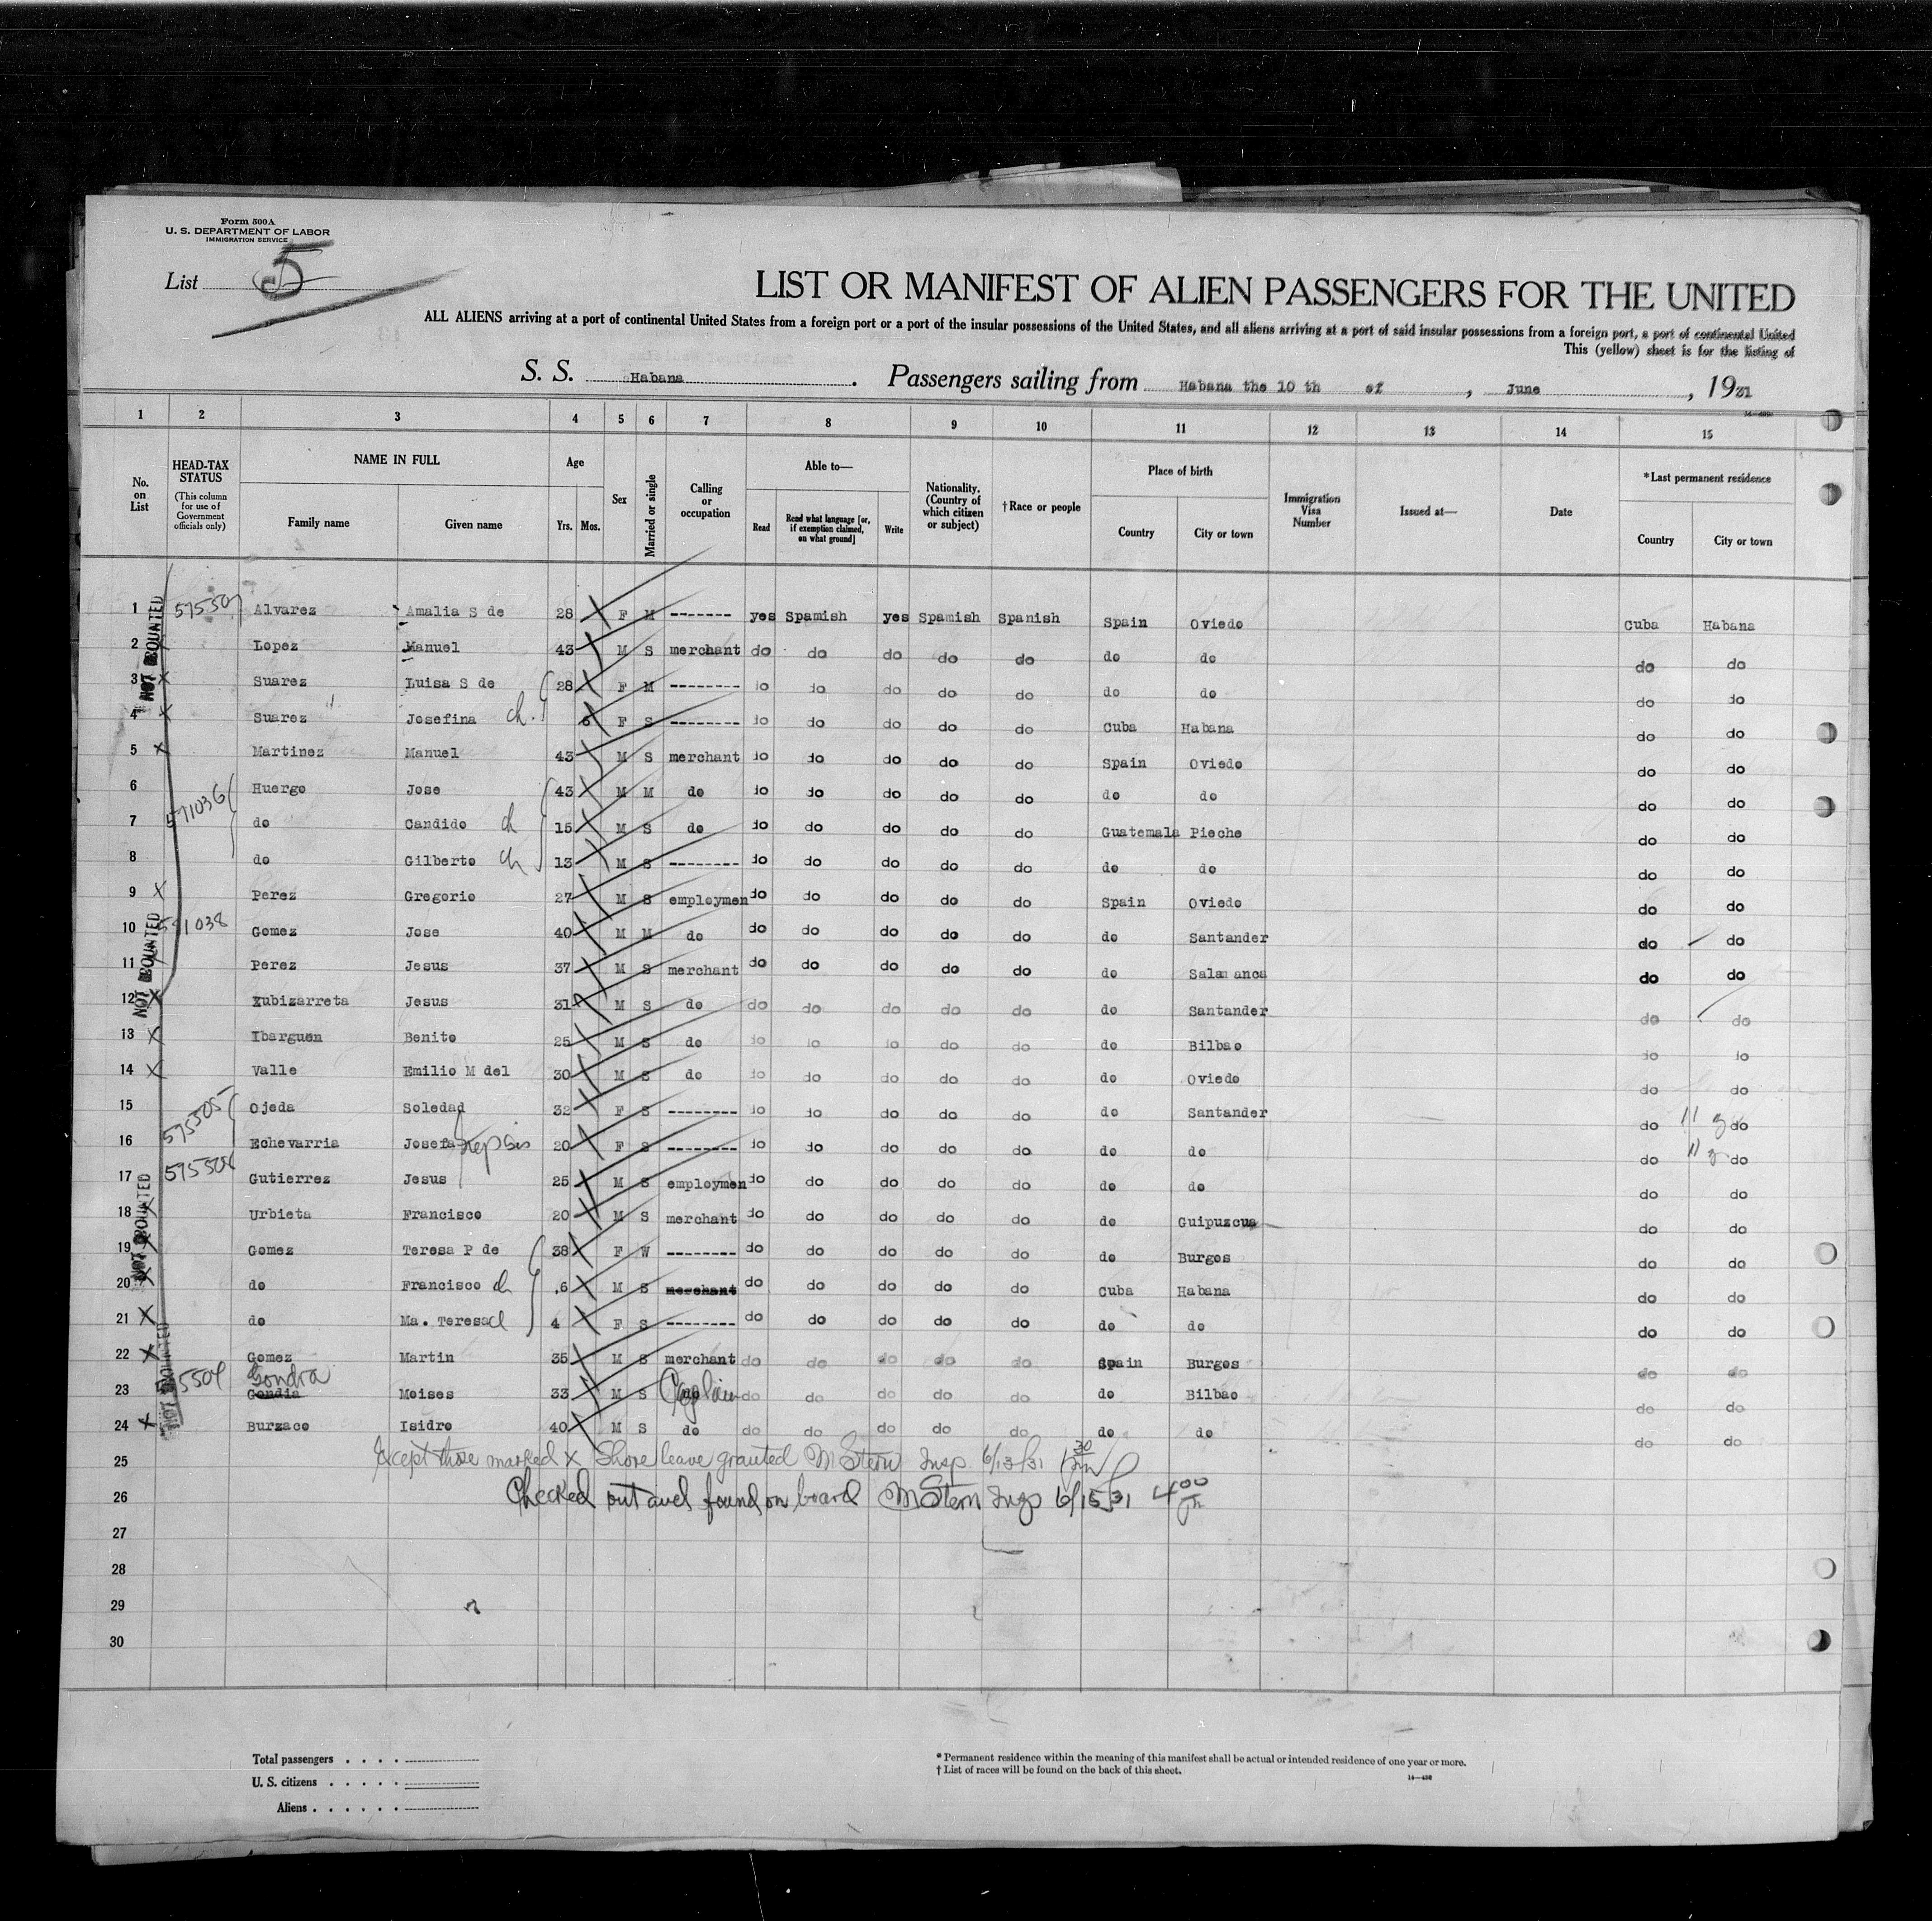 Form 500A
U. S. DEPARTMENT OF LABOR
IMMIGRATION SERVICE
List 5
LIST OR MANIFEST OF ALIEN PASSENGERS FOR THE UNITED
ALL ALIENS arriving at a port of continental United States from a foreign port or a port of the insular possessions of the United States, and all aliens arriving at a port of said insular possessions from a foreign port, a port of continental United
This (yellow) sheet is for the listing of
S. S. Habana. Passengers sailing from Habana the 10 th of, June, 1931
1 2 3 4 5 6 7 8 9 10 11 12 13 14 15
No. on List
HEAD-TAX STATUS (This column for use of Government officials only)
NAME IN FULL Family name Given name
Age Yrs. Mos.
Sex
Married or single
Calling or occupation
Able to— Read Read what language [or, if exemption claimed, on what ground] Write
Nationality. (Country of which citizen or subject)
†Race or people
Place of birth Country City or town
Immigration Visa Number
Issued at—
Date
*Last permanent residence Country City or town
NOT COUNTED
1 575507 Alvarez Amalia S de 28 F M ------- yes Spamish yes Spamish Spanish Spain Oviedo Cuba Habana
2 Lopez Manuel 43 M S merchant do do do do do do do do do
3 X Suarez Luisa S de 28 F M -------- do do do do do do do do do
4 X Suarez Josefina ch. 6 F S -------- do do do do do Cuba Habana do do
5 X Martinez Manuel 43 M S merchant do do do do do Spain Oviedo do do
6 Huergo Jose 43 M M do do do do do do do do do do
571036
7 do Candido ch 15 M S do do do do do do Guatemala Pieche do do
8 do Gilberto ch 13 M S -------- do do do do do do do do do
9 X Perez Gregorio 27 M S employmen do do do do do Spain Oviedo do do
NOT COUNTED
10 571038 Gomez Jose 40 M M do do do do do do do Santander do do
11 Perez Jesus 37 M S merchant do do do do do do Salamanca do do
12 X Xubizarreta Jesus 31 M S do do do do do do do Santander do do
13 X Ibarguen Benito 25 M S do do do do do do do Bilbao do do
14 X Valle Emilio M del 30 M S do do do do do do do Oviedo do do
15 575505 Ojeda Soledad 32 F S -------- do do do do do do Santander do do
16 Echevarria Josefa 20 F S -------- do do do do do do do do do
17 Gutierrez Jesus 25 M S employmen do do do do do do do do do
NOT COUNTED
18 X Urbieta Francisco 20 M S merchant do do do do do do Guipuzcua do do
19 X Gomez Teresa P de 38 F W -------- do do do do do do Burgos do do
20 X do Francisco ch 6 M S merchant do do do do do Cuba Habana do do
21 X do Ma. Teresa ch 4 F S -------- do do do do do do do do do
NOT COUNTED
22 X Gomez Martin 35 M S merchant do do do do do Spain Burgos do do
Gondra
23 Gondia Moises 33 M S do do do do do do Bilbao do do
24 X Burzaco Isidro 40 M S do do do do do do do do do do
25 Except those marked X Shore leave granted M Stern Insp 6/13/31
26 Checked out and found on board M Stern Insp 6/15/31 4 00
27
28
29
30
Total passengers . . . .
U. S. citizens . . . . .
Aliens . . . . . .
* Permanent residence within the meaning of this manifest shall be actual or intended residence of one year or more.
† List of races will be found on the back of this sheet.